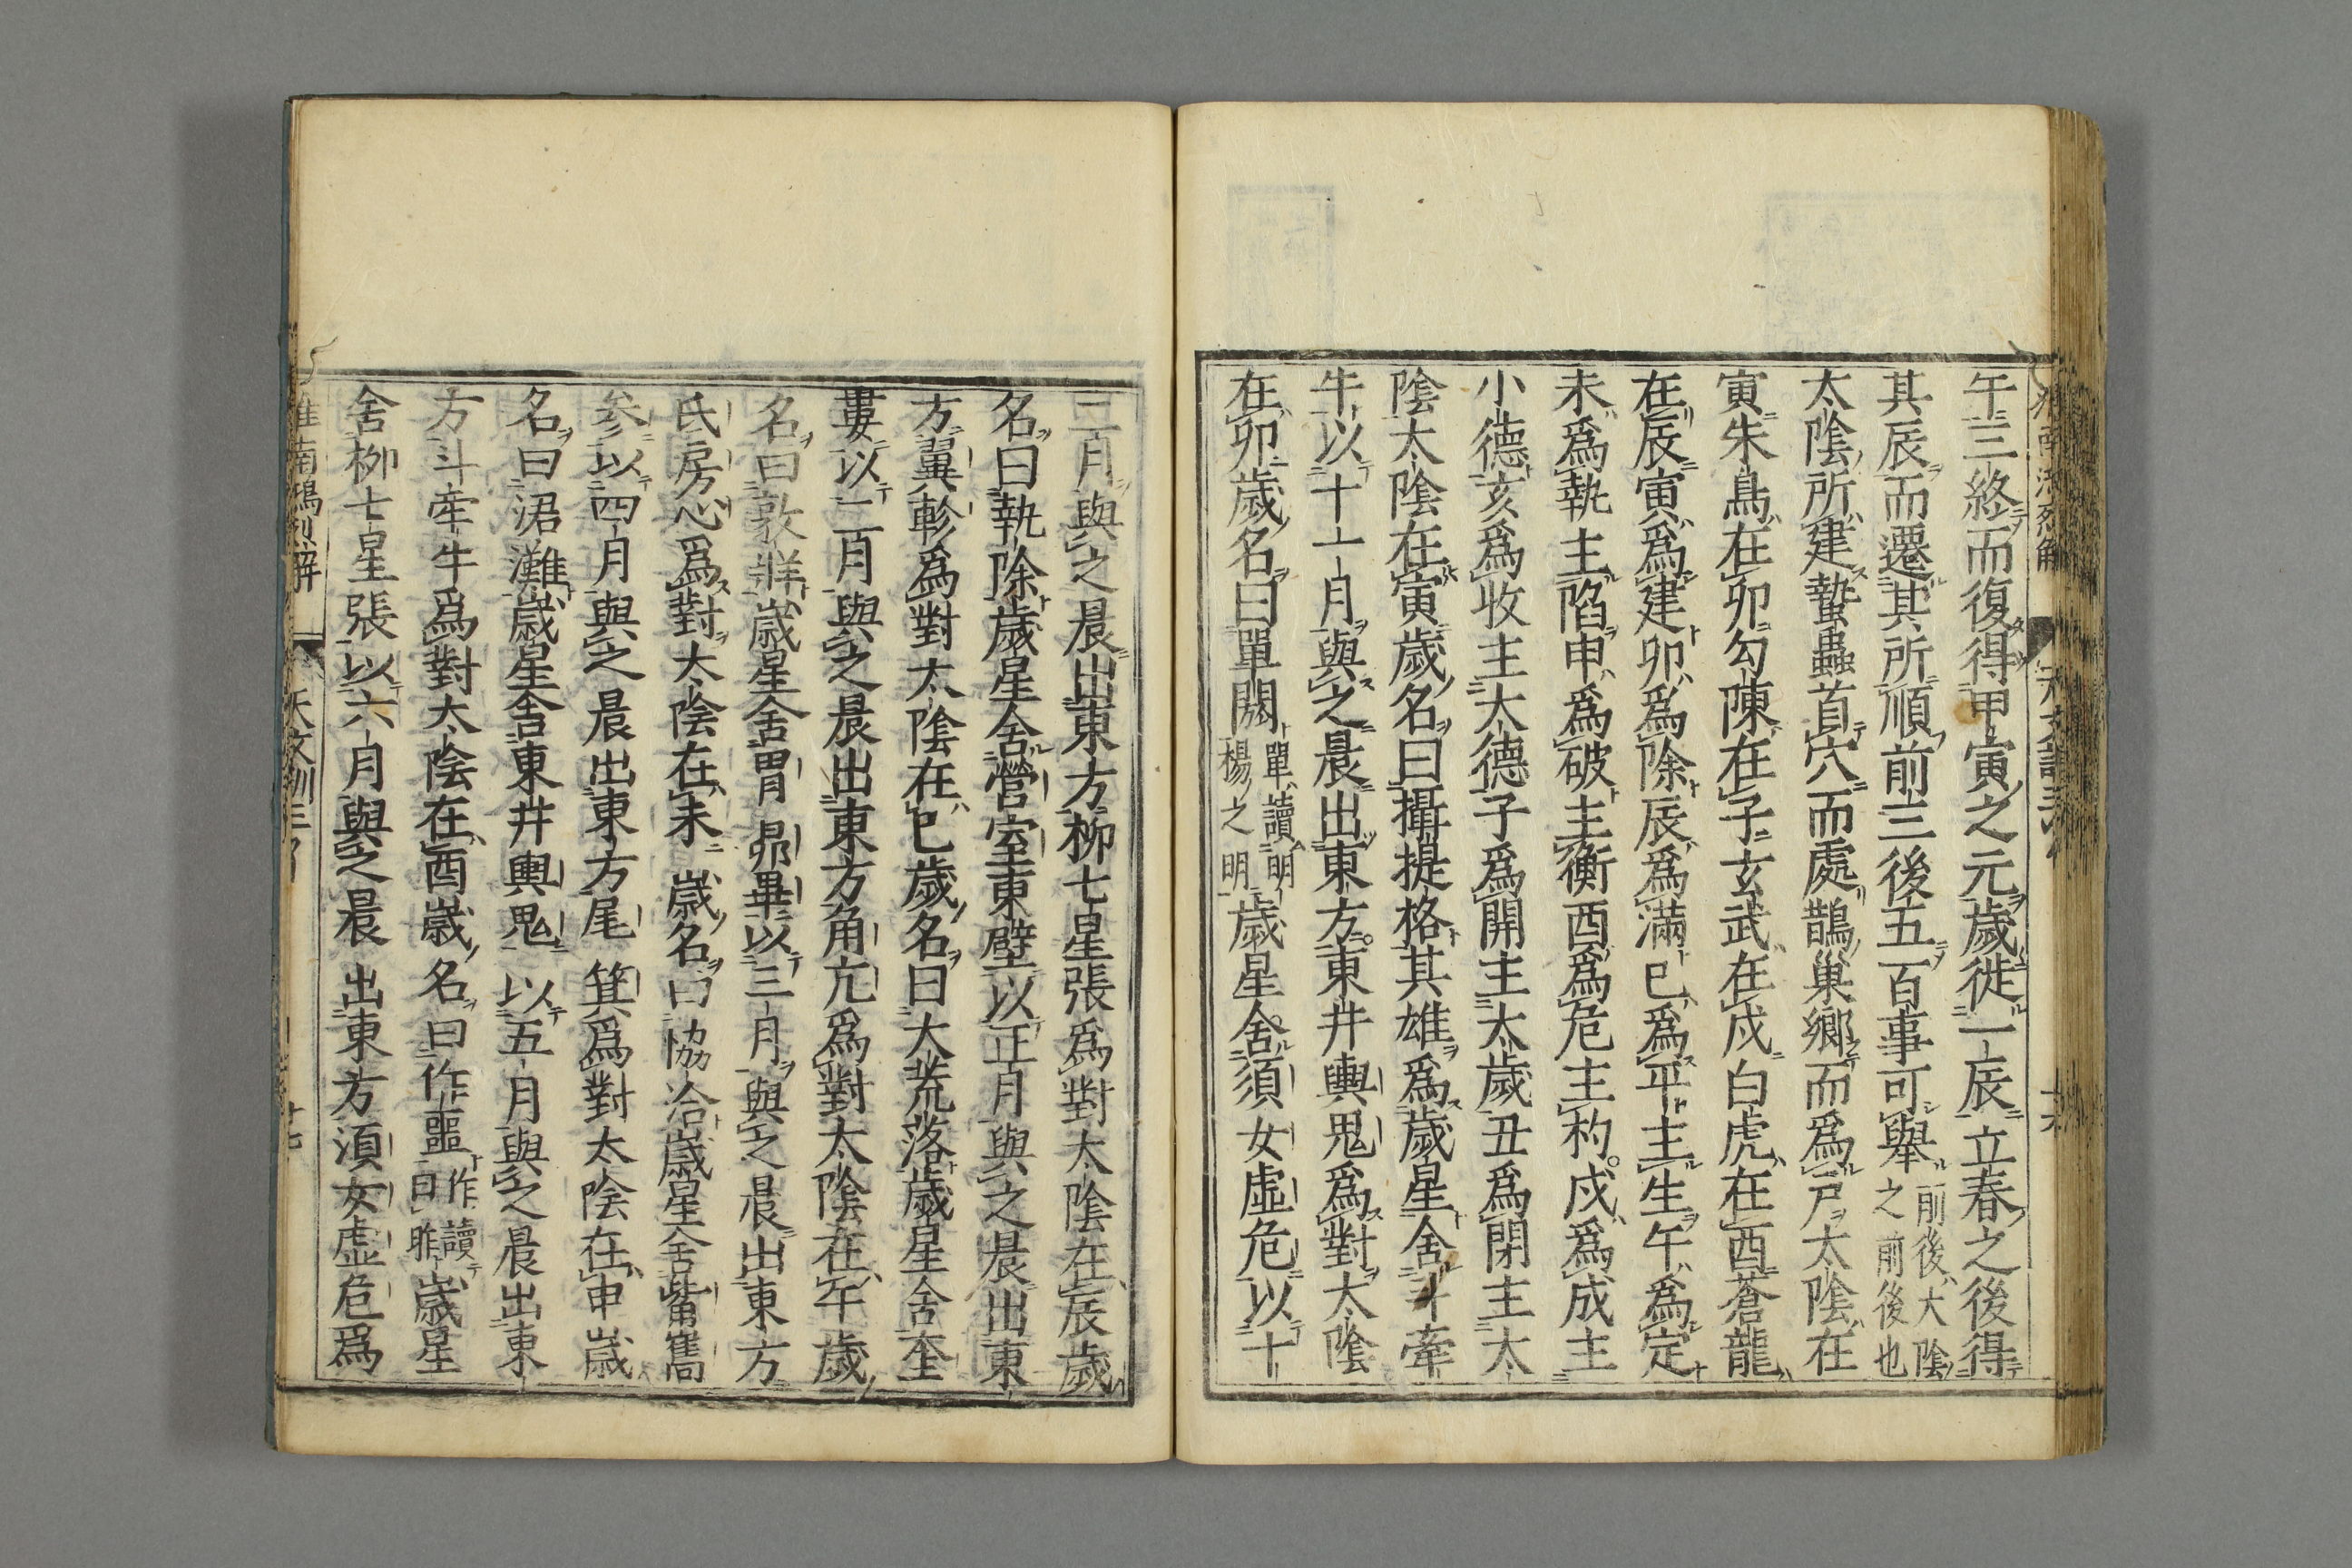 午三終而復得甲寅之元歲徙一辰立春之後得
其辰而遷其所順前三後五百事可舉前後大陰之前後也
太陰所建蟄蟲首穴而處鵲巢鄉而爲戸太陰在
寅朱鳥在卯勾陳在子玄武在戌白虎在酉蒼龍
在辰寅爲建卯爲除辰爲滿巳爲平主生午爲定
未爲執主陷申爲破主衡酉爲危主杓戌爲成主
小德亥爲收主大德子爲開主太歲丑爲閉主太
陰太陰在寅歲名曰攝提格其雄爲歲星舍斗牽
牛以十一月與之晨出東方東井輿鬼爲對太陰
在卯歲名曰單閼單讀明楊之明歲星舍須女虛危以十
二月與之晨出東方柳七星張爲對太陰在辰歲
名曰執除歲星舍營室東壁以正月與之晨出東
方翼軫爲對太陰在巳歲名曰大荒落歲星舍奎
婁以二月與之晨出東方角亢爲對太陰在午歲
名曰敦牂歲星舍胃昴畢以三月與之晨出東方
氐房心爲對太陰在未歲名曰協洽歲星舍觜觿
參以四月與之晨出東方尾箕爲對太陰在申歲
名曰涒灘歲星舍東井輿鬼以五月與之晨出東
方斗牽牛爲對太陰在酉歲名曰作噩作讀曰昨歲星
舍柳七星張以六月與之晨出東方須女虛危爲
淮南鴻烈解 天文訓三 十七